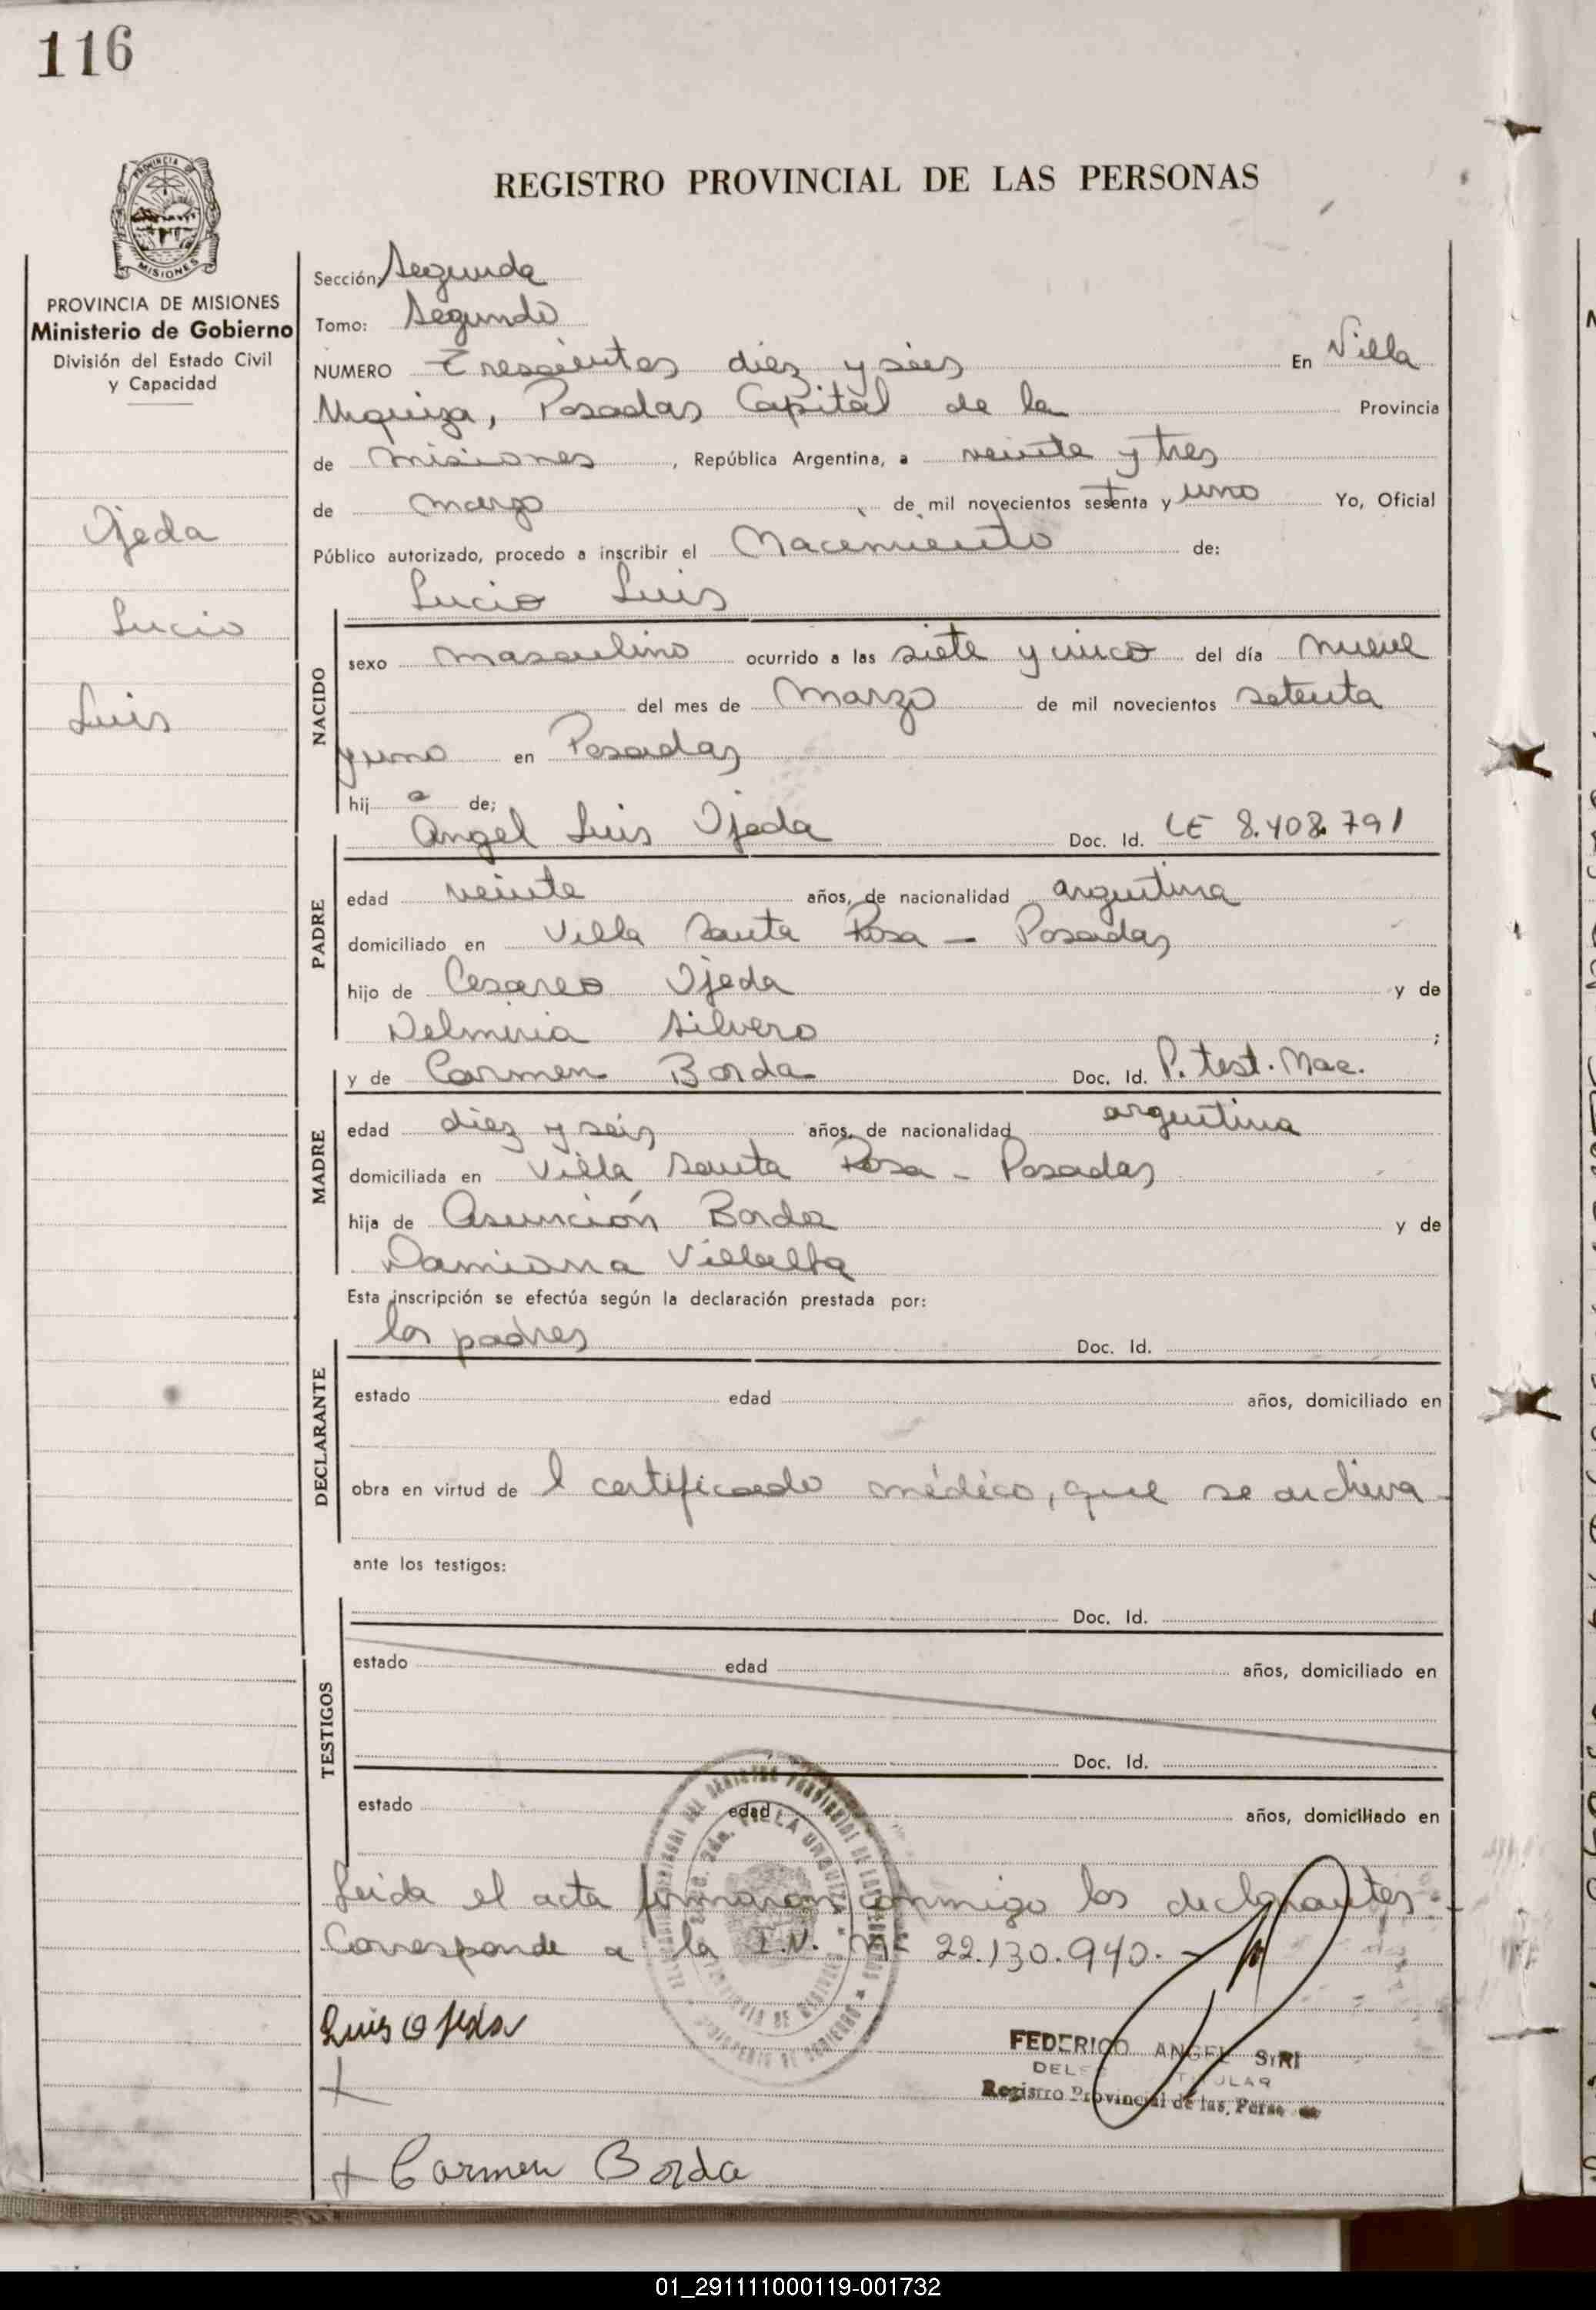 116
REGISTRO PROVINCIAL DE LAS PERSONAS
PROVINCIA DE MISIONES
Ministerio de Gobierno
División del Estado Civil
y Capacidad
Ojeda
Lucio
Luis
Sección: Segunda
Tomo: Segundo
NUMERO Trescientos diez y seis En Villa
Urquiza, Posadas Capital de la Provincia
de Misiones, República Argentina, a veinte y tres
de marzo de mil novecientos setenta y uno Yo, Oficial
Público autorizado, procedo a inscribir el Nacimiento de:
Lucio Luis
NACIDO
sexo masculino ocurrido a las siete y cinco del día nueve
del mes de Marzo de mil novecientos setenta
y uno en Posadas
hijo de;
Angel Luis Ojeda Doc. Id. LE 8.408.791
PADRE
edad veinte años, de nacionalidad argentina
domiciliado en Villa Santa Rosa - Posadas
hijo de Cesareo Ojeda y de
Delmiria Silvero ;
y de Carmen Borda Doc. Id. P. test. Nac.
MADRE
edad diez y seis años, de nacionalidad argentina
domiciliada en Villa Santa Rosa - Posadas
hija de Asunción Borda y de
Damiana Villalba
Esta inscripción se efectúa según la declaración prestada por:
los padres Doc. Id.
DECLARANTE
estado edad años, domiciliado en
obra en virtud de l certificado médico, que se archiva-
ante los testigos:
Doc. Id.
TESTIGOS
estado edad años, domiciliado en
Doc. Id.
estado edad años, domiciliado en
Leida el acta firmaron conmigo los declarantes.-
Corresponde a la I.N. Nº 22.130.940.-
Luis Ojeda
FEDERICO ANGEL SIRI
TITULAR
Registro Provincial de las
Carmen Borda
01_291111000119-001732